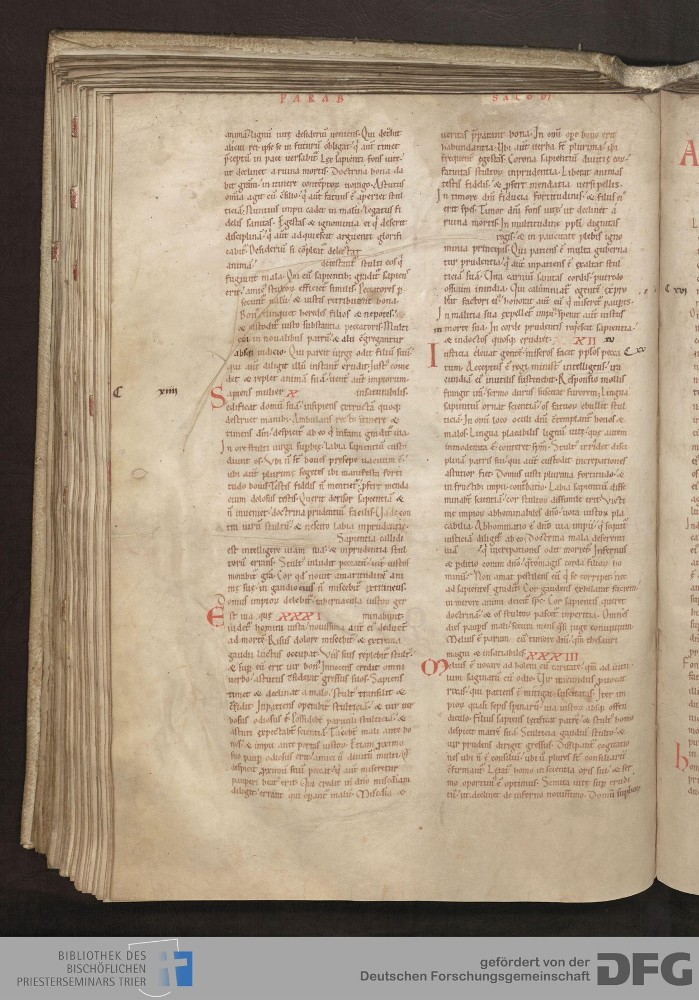 PARAB
SALOM
anime. lignum vite desiderium veniens. Qui detrahit
alicui rei ipse se in futurum obligat. qui autem timet
preceptum in pace versabitur. Lex sapientis fons vite. ut
ut declinet a ruina mortis. Doctrina bona da
bit gratiam. in itinere contemptorum vorago. Astutus
omnia agit cum consilio. qui autem fatuus est aperiet stul
ticiam. Nuntius impii cadet in malum. legatus fi
delis sanitas. Egestas & ignominia ei qui deserit
disciplinam. qui autem adquiescit arguenti glorifi
cabitur. Desiderium si compleatur delectat
animam. detestantur stulti eos qui
fugiunt mala. Qui cum sapientibus graditur sapiens
erit. amicus stultorum efficietur similis. Peccatores per
sequitur malum. & iustis retribuentur bona.
Bonus relinquet heredes filios & nepotes.
& custoditur iusto substantia peccatoris. Multi
cibi in novalibus patrum. & alii congregantur
absque iudicio. Qui parcit virge odit filium suum.
qui autem diligit illum instanter erudit. Iustus come
dit & replet animam suam. venter autem impiorum
Sapiens mulier X insaturabilis.
C XIIII
edificat domum suam. insipiens extructam quoque
destruet manibus. Ambulans recto itinere &
timens deum. despicitur ab eo qui infami graditur via.
In ore stulti virga superbie. labia sapientium custo
diunt eos. Ubi non sunt boves presepe vacuum est.
ubi autem plurime segetes ibi manifesta forti
tudo bovis. Testis fidelis non mentietur. profert menda
cium dolosus testis. Querit derisor sapientiam &
non inveniet. doctrina prudentium facilis. Vade con
tra virum stultum. & nescito labia imprudentie.
Sapientia callidi
est intelligere viam suam. & imprudentia stul
torum errans. Stultus illudet peccatum. inter iustos
morabitur gratia. Cor quod novit amaritudinem ani
me sue. in gaudio eius non miscebitur extraneus.
Domus impiorum delebitur. tabernacula iustorum ger
Est via que XXXI minabunt.
videtur homini iusta. novissima autem eius deducunt
ad mortem. Risus dolore miscebitur. & extrema
gaudii luctus occupat. Viis suis replebitur stultus.
& super eum erit vir bonus. Innocens credit omni
verbo. astutus considerat gressus suos. Sapiens
timet & declinat a malo. stultus transilit &
confidit. Impatiens operabitur stulticiam. & vir ver
sutus odiosus est. Possidebunt parvuli stulticiam. &
astuti expectabunt scientiam. Iacebunt mali ante bo
nos. & impii ante portas iustorum. Etiam proximo
suo pauper odiosus erit. amici vero divitum multi. Qui
despicit proximum suum peccat. qui autem miseretur
pauperis beatus erit. Qui credit in domino misericordiam
diligit. errant qui operantur malum. Misericordia &
veritas preparant bona. In omni opere bono erit
habundantia. Ubi autem verba sunt plurima. ibi
frequenter egestas. Corona sapientium divitie eorum.
fatuitas stultorum imprudentia. Liberat animas
testis fidelis. & profert mendatia versipellis.
In timore domini fiducia fortitudinis. & filiis eius
erit spes. Timor domini fons vite. ut declinet a
ruina mortis. In multitudine populi dignitas
regis. & in paucitate plebis igno
minia principis. Qui patiens est multa guberna
tur prudentia. qui autem impatiens est exaltat stul
ticiam suam. Vita carnium sanitas cordis. putredo
ossium invidia. Qui calumniatur egentem expro
brat factori eius. honorat autem eum qui miseretur pauperis.
In malitia sua expelletur impius. sperat autem iustus
in morte sua. In corde prudentis requiescit sapientia.
& indoctos quosque erudiet. XII
C XV
C XVI
Iusticia elevat gentem. miseros facit populos pecca
tum. Acceptus est regi minister intelligens. ira
cundiam eius inutilis sustinebit. Responsio mollis
frangit iram. sermo durus suscitat furorem. Lingua
sapientum ornat scientiam. os fatuorum ebullit stul
ticiam. In omni loco oculi domini contemplantur bonos &
malos. Lingua placabilis lignum vite. que autem
immoderata est conteret spiritum. Stultus irridet disci
plinam patris sui. qui autem custodit increpationes
astutior fiet. Domus iusti plurima fortitudo. &
in fructibus impii conturbatio. Labia sapientium disse
minabunt scientiam. cor stultorum dissimile erit. Victi
me impiorum abhominabiles domino. vota iustorum pla
cabilia. Abhominatio est domino via impii. qui sequitur
iusticiam diligitur ab eo. Doctrina mala deserenti
viam. qui increpationes odit morietur. Infernus
& perditio coram domino. quanto magis corda filiorum ho
minum. Non amat pestilens eum qui se corripit. nec
ad sapientes graditur. Cor gaudens exhilarat faciem.
in merore animi deicitur spiritus. Cor sapientis querit
doctrinam. & os stultorum pascitur imperitia. Omnes
dies pauperis mali. secura mens quasi iuge convivium.
Melius est parum cum timore domini. quam thesauri
magni & insatiabiles. XXXIII
Melius est vocare ad holera cum caritate. quam ad vitu
lum saginatum cum odio. Vir iracundus provocat
rixas. qui patiens est mitigat suscitatas. Iter im
piorum quasi sepes spinarum. via iustorum absque offen
diculo. Filius sapiens letificat patrem. & stultus homo
despicit matrem suam. Stulticia gaudium stulto. &
vir prudens diriget gressus. Dissipantur cogitatio
nes ubi non est consilium. ubi vero plures sunt consiliarii
confirmantur. Letatur homo in sententia oris sui. & ser
mo oportunus est optimus. Semita vite super erudi
tum. ut declinet de inferno novissimo. Domum superborum
BIBLIOTHEK DES
BISCHÖFLICHEN
PRIESTERSEMINARS TRIER
gefördert von der
Deutschen Forschungsgemeinschaft
DFG